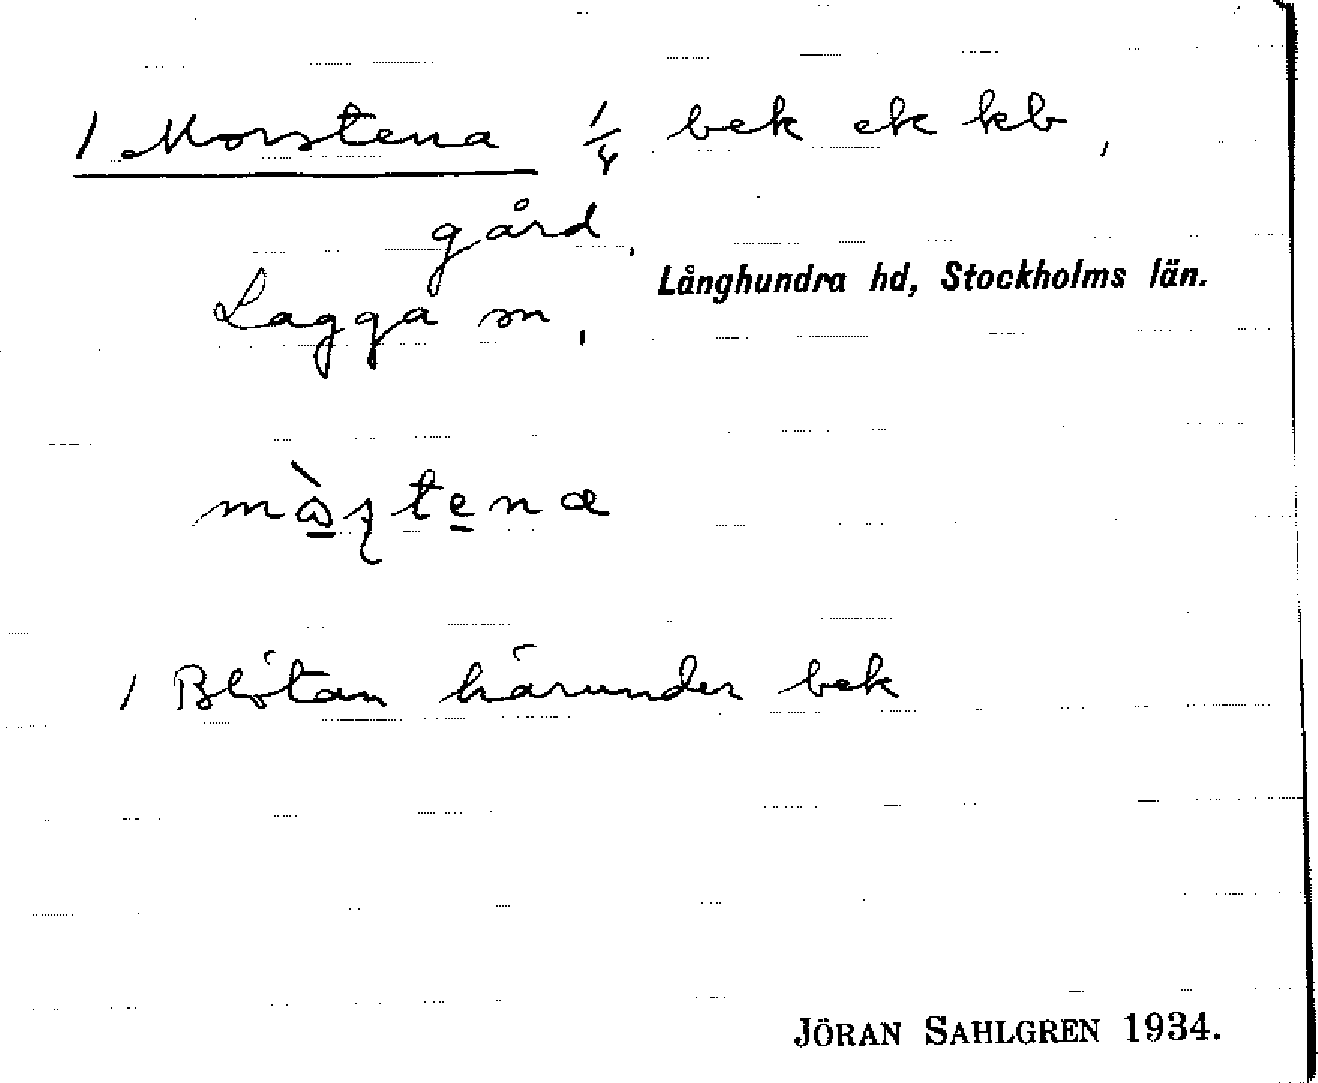 / Morstena 1/4 bek ek kb,
gård,
Långhundra hd, Stockholms län.
Lagga sn,
/ Blötan härunder bek
JÖRAN SAHLGREN 1934.